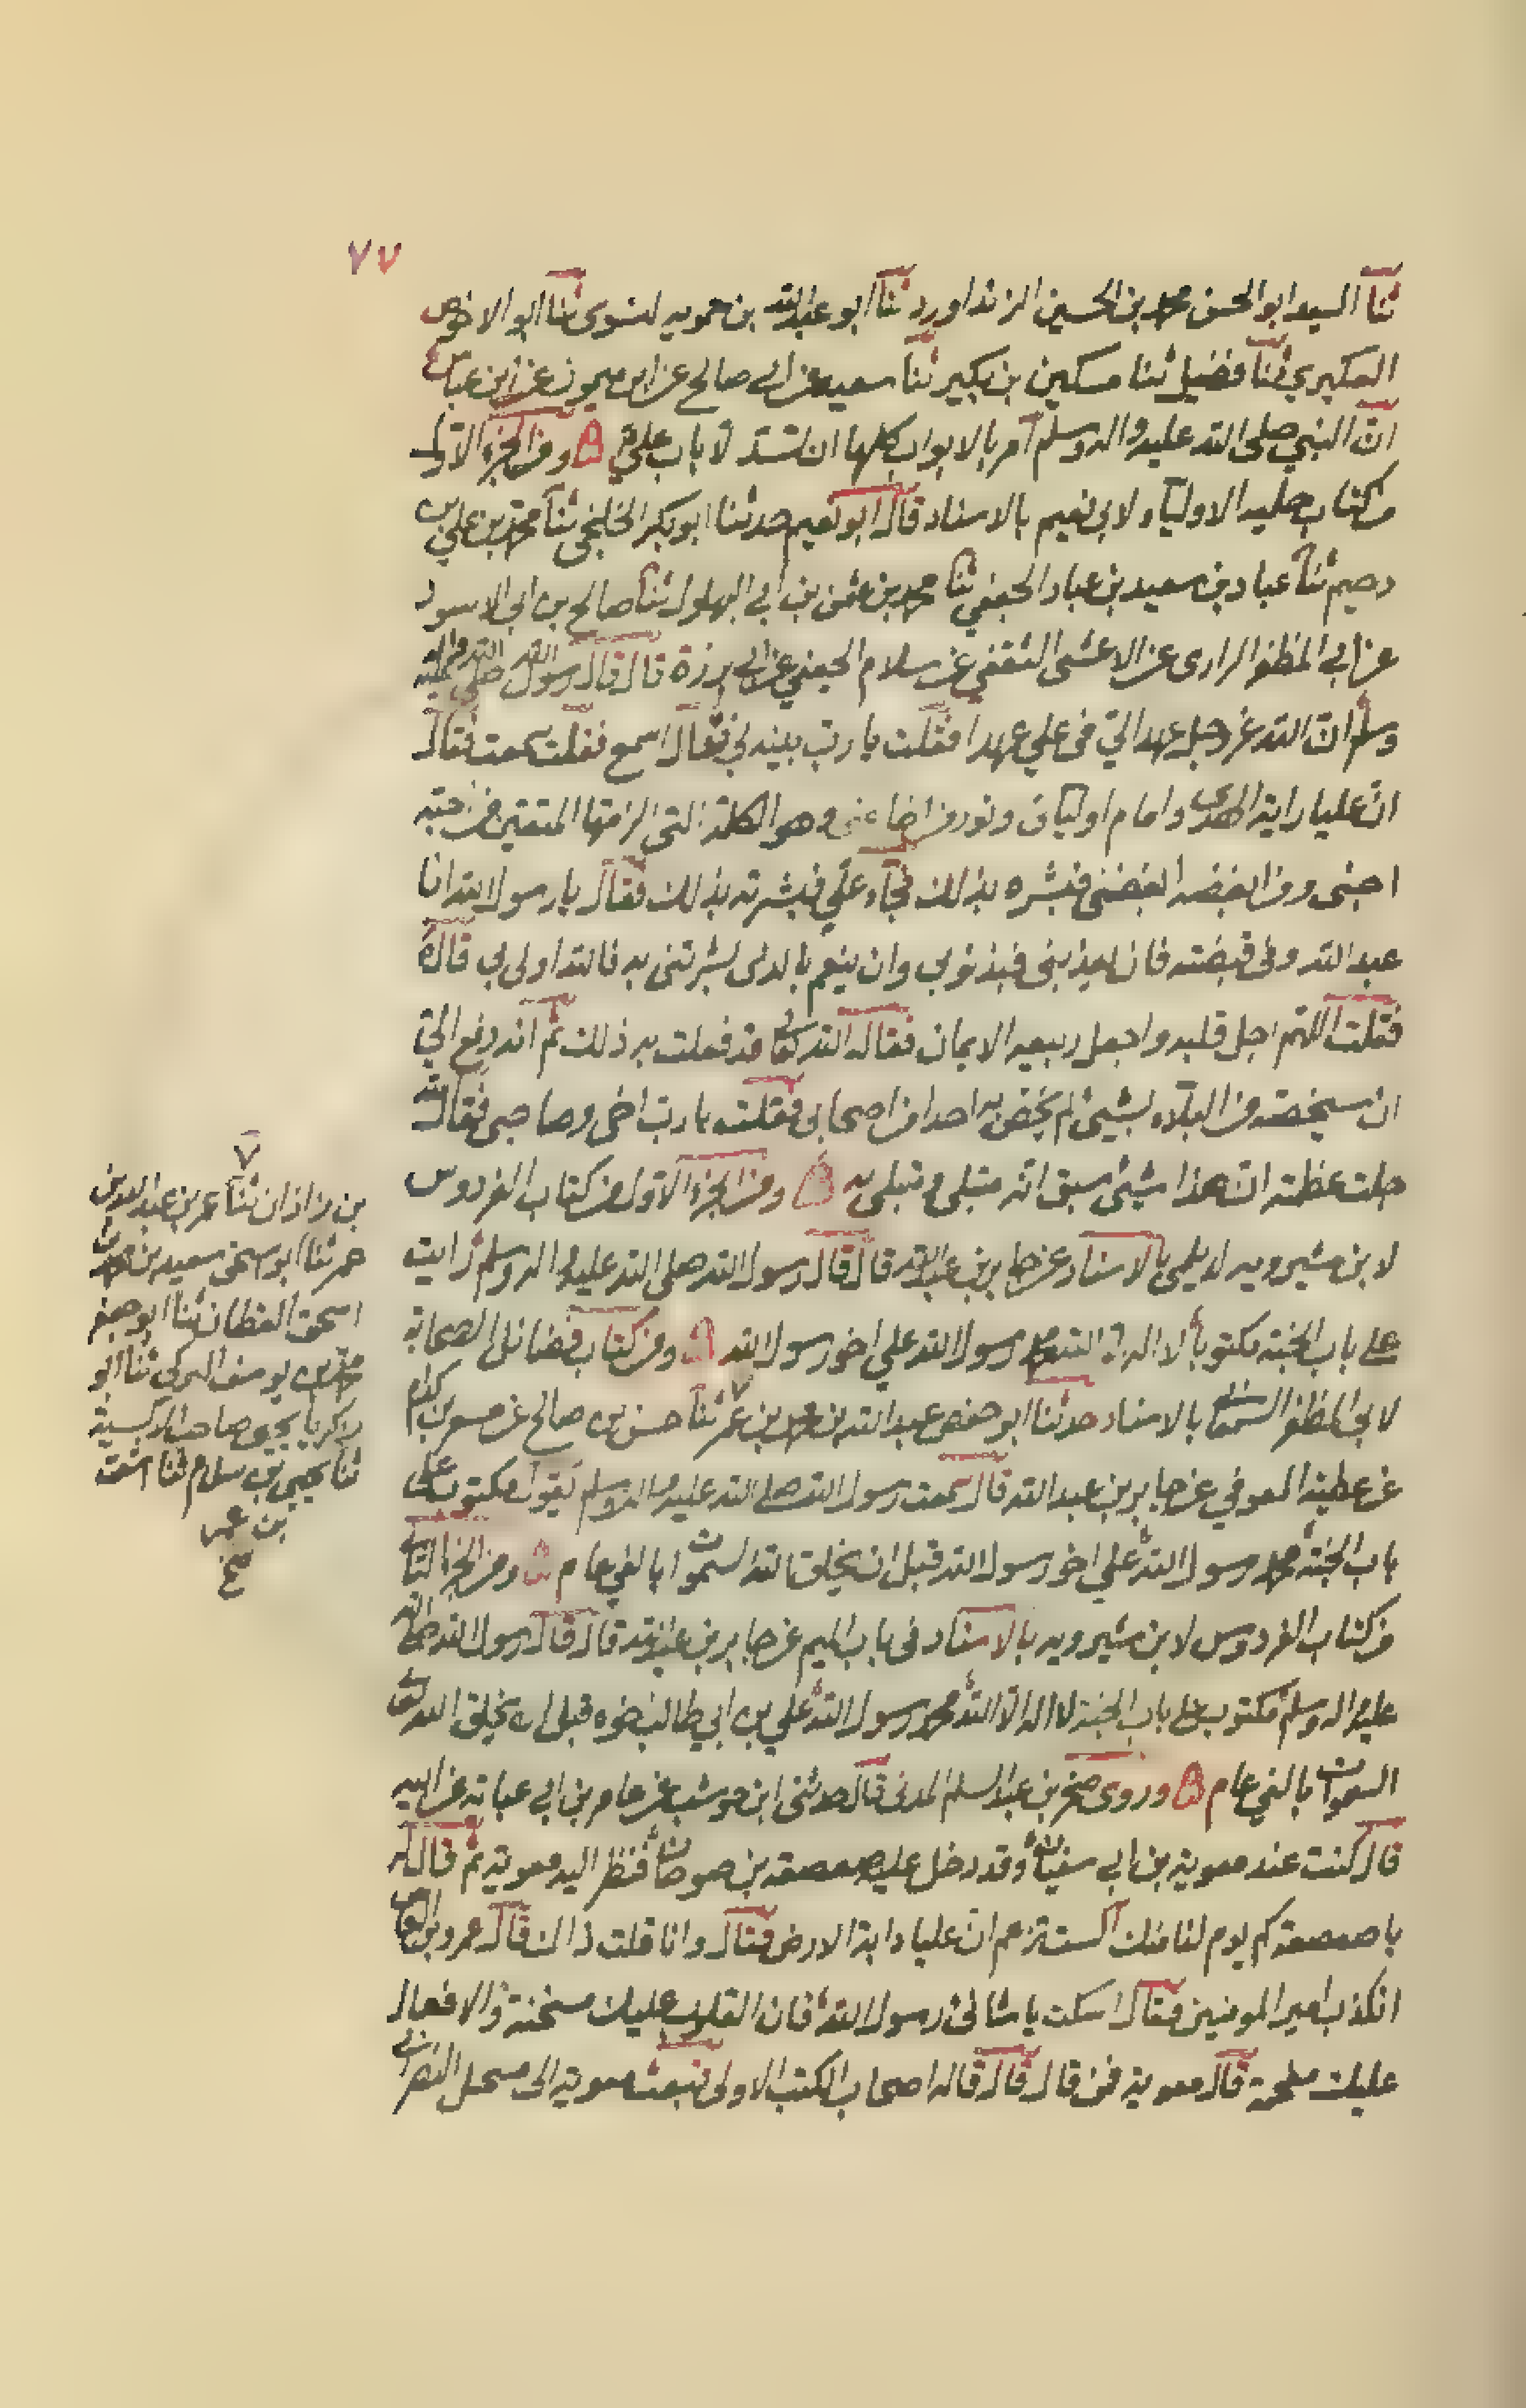 ٧٧
ثنا السيد ابو الحسن محمد بن الحسين الزنداورد ثنا ابو عبد الله بن حمويه لنسوى ثنا ابو الاخوص
العكبري ثنا فضيل ثنا مسكين بن بكير ثنا سعيد عن ابي صالح عن ابن ميمون عن ابن عباس
انّ النبي صلى الله عليه واله وسلم امر بالابواب كلها ان تسدّ الا باب علي ومن الجزء الاول
من كتاب حلية الاولياء لابي نعيم بالاسناد قال ابو نعيم حدثنا ابو بكر الخلنجي ثنا محمد بن علي بن
دحيم ثنا عباد بن سعيد بن عباد الجعفي ثنا محمد بن عثمن بن ابي البهلول ثنا صالح بن ابي الاسود
عن ابي المظفر الرازى عن الاعشى الثقفي عن سلام الجعفي عن ابي برزة قال قال رسول الله صلى الله عليه واله
وسلم ان الله عز وجل عهد الي في علي عهدا فقلت يا رب بينه لي فقال اسمع فقلت سمعت فقال
انّ عليا راية الهدى وامام اوليائى ونور من اطاعنى وهو الكلمة التى الزمتها المتقين من احبه
احبنى ومن ابغضه ابغضنى فبشره بذلك فجاء علي فبشرته بذلك فقال يا رسول الله انا
عبد الله وفى قبضته فان يعذبنى فبذنوبي وان يتم بالذى بشرتنى به فالله اولى بي قال
فقلت اللهم اجل قلبه واجعل ربيعه الايمان فقال الله تعالى قد فعلت به ذلك ثم انه رفع اليّ
ان سيخصه من البلاء بشيئ لم يخص به احدا من اصحابى فقلت يا رب اخى وصاحبى فقال الله
جلت عظمته انّ هذا شيئ سبق انّه مبتلى ومبتلى به ومن الجزء الاول من كتاب الفردوس
لابن شيرويه الديلمى بالاسناد عن جابر بن عبد الله قال قال رسول الله صلى الله عليه واله وسلم رايت
على باب الجنة مكتوبا لا اله الا الله محمد رسول الله علي اخو رسول الله ومن كتاب فضائل الصحابة
لابي المظفر السمعانى بالاسناد حدثنا ابو حفص عبد الله بن محمد بن عمر ثنا حسن بن صالح عن مسعر بن كدام
عن عطية العوفي عن جابر بن عبد الله قال سمعت رسول الله صلى الله عليه واله وسلم يقول مكتوب على
باب الجنة محمد رسول الله علي اخو رسول الله قبل ان يخلق الله السموات بالفي عام ومن الجزء الثانى
من كتاب الفردوس لابن شيرويه بالاسناد فى باب الميم عن جابر بن عبد الله قال قال رسول الله صلى الله
عليه واله وسلم مكتوب على باب الجنة لا اله الا الله محمد رسول الله علي بن ابي طالب اخوه قبل ان يخلق الله تعالى
السموات بالفي عام وروى صخر بن عبد السلم المدنى قال حدثنى ابن حوشب عن عامر بن ابي عباية عن ابيه
قال كنت عند معوية بن ابي سفيان وقد دخل عليه صعصعة بن صوحان فنظر اليه معوية ثم قال له
يا صعصعة كم يوم لنا منك الست تزعم ان عليا دابة الارض فقال وانا قلت ذالك قال عمرو بن العاص
اتكذب امير المومنين فقال اسكت يا شانئ رسول الله فان القلوب عليك مسخنة والافعال
عليك قال معوية فمن قال قال قاله اصحاب الكتب الاولى فبعث معوية الى مسحل النصرانى
٧
بن زاذان ثنا عمر بن عبد الله بن
عمر ثنا ابو اسحق سعيد بن محمد ثنا
اسحق القطان ثنا ابو جعفر
محمد بن يوسف التركى ثنا ابو
زكريا يحيى صاحب الركسية
ثنا يحيى بن سلام ثنا اشعث
بن عمر
صح